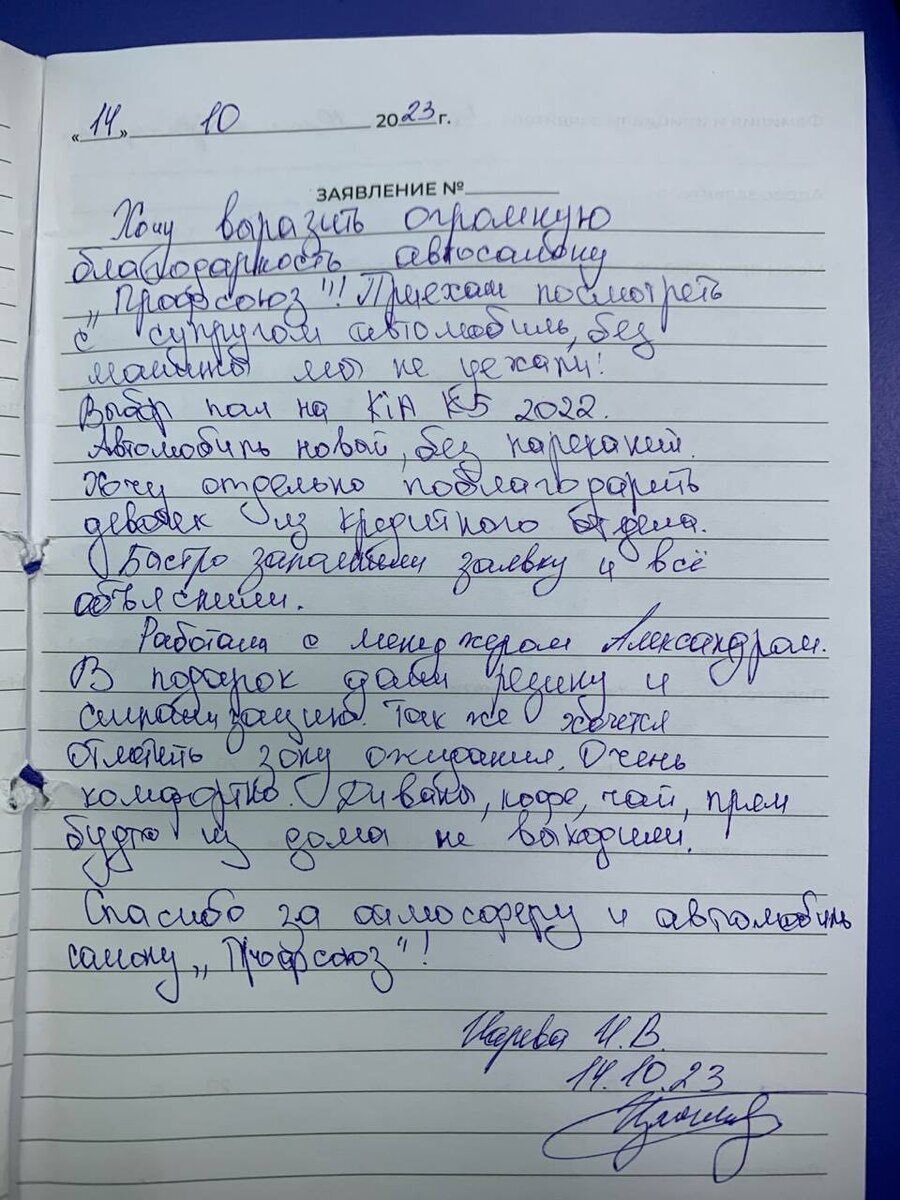 «14» 10 2023 г.
ЗАЯВЛЕНИЕ №
Хочу выразить огромную
благодарность автосалону
„Профсоюз"!! Приехали посмотреть
с супругом автомобиль, без
машины мы не уехали!
Выбор пал на KIA K5 2022.
Автомобиль новый, без нареканий.
Хочу отдельно поблагодарить
девочек из кредитного отдела.
Быстро запол­нили заявку и всё
объяснили.
Работали с менеджером Александром.
В подарок дали резину и
сигнализацию. Так же хочется
отметить зону ожидания. Очень
комфортно. Диваны, кофе, чай, прям
будто из дома не выходили.
Спасибо за атмосферу и автомобиль
салону „Профсоюз"!
И.В.
14.10.23